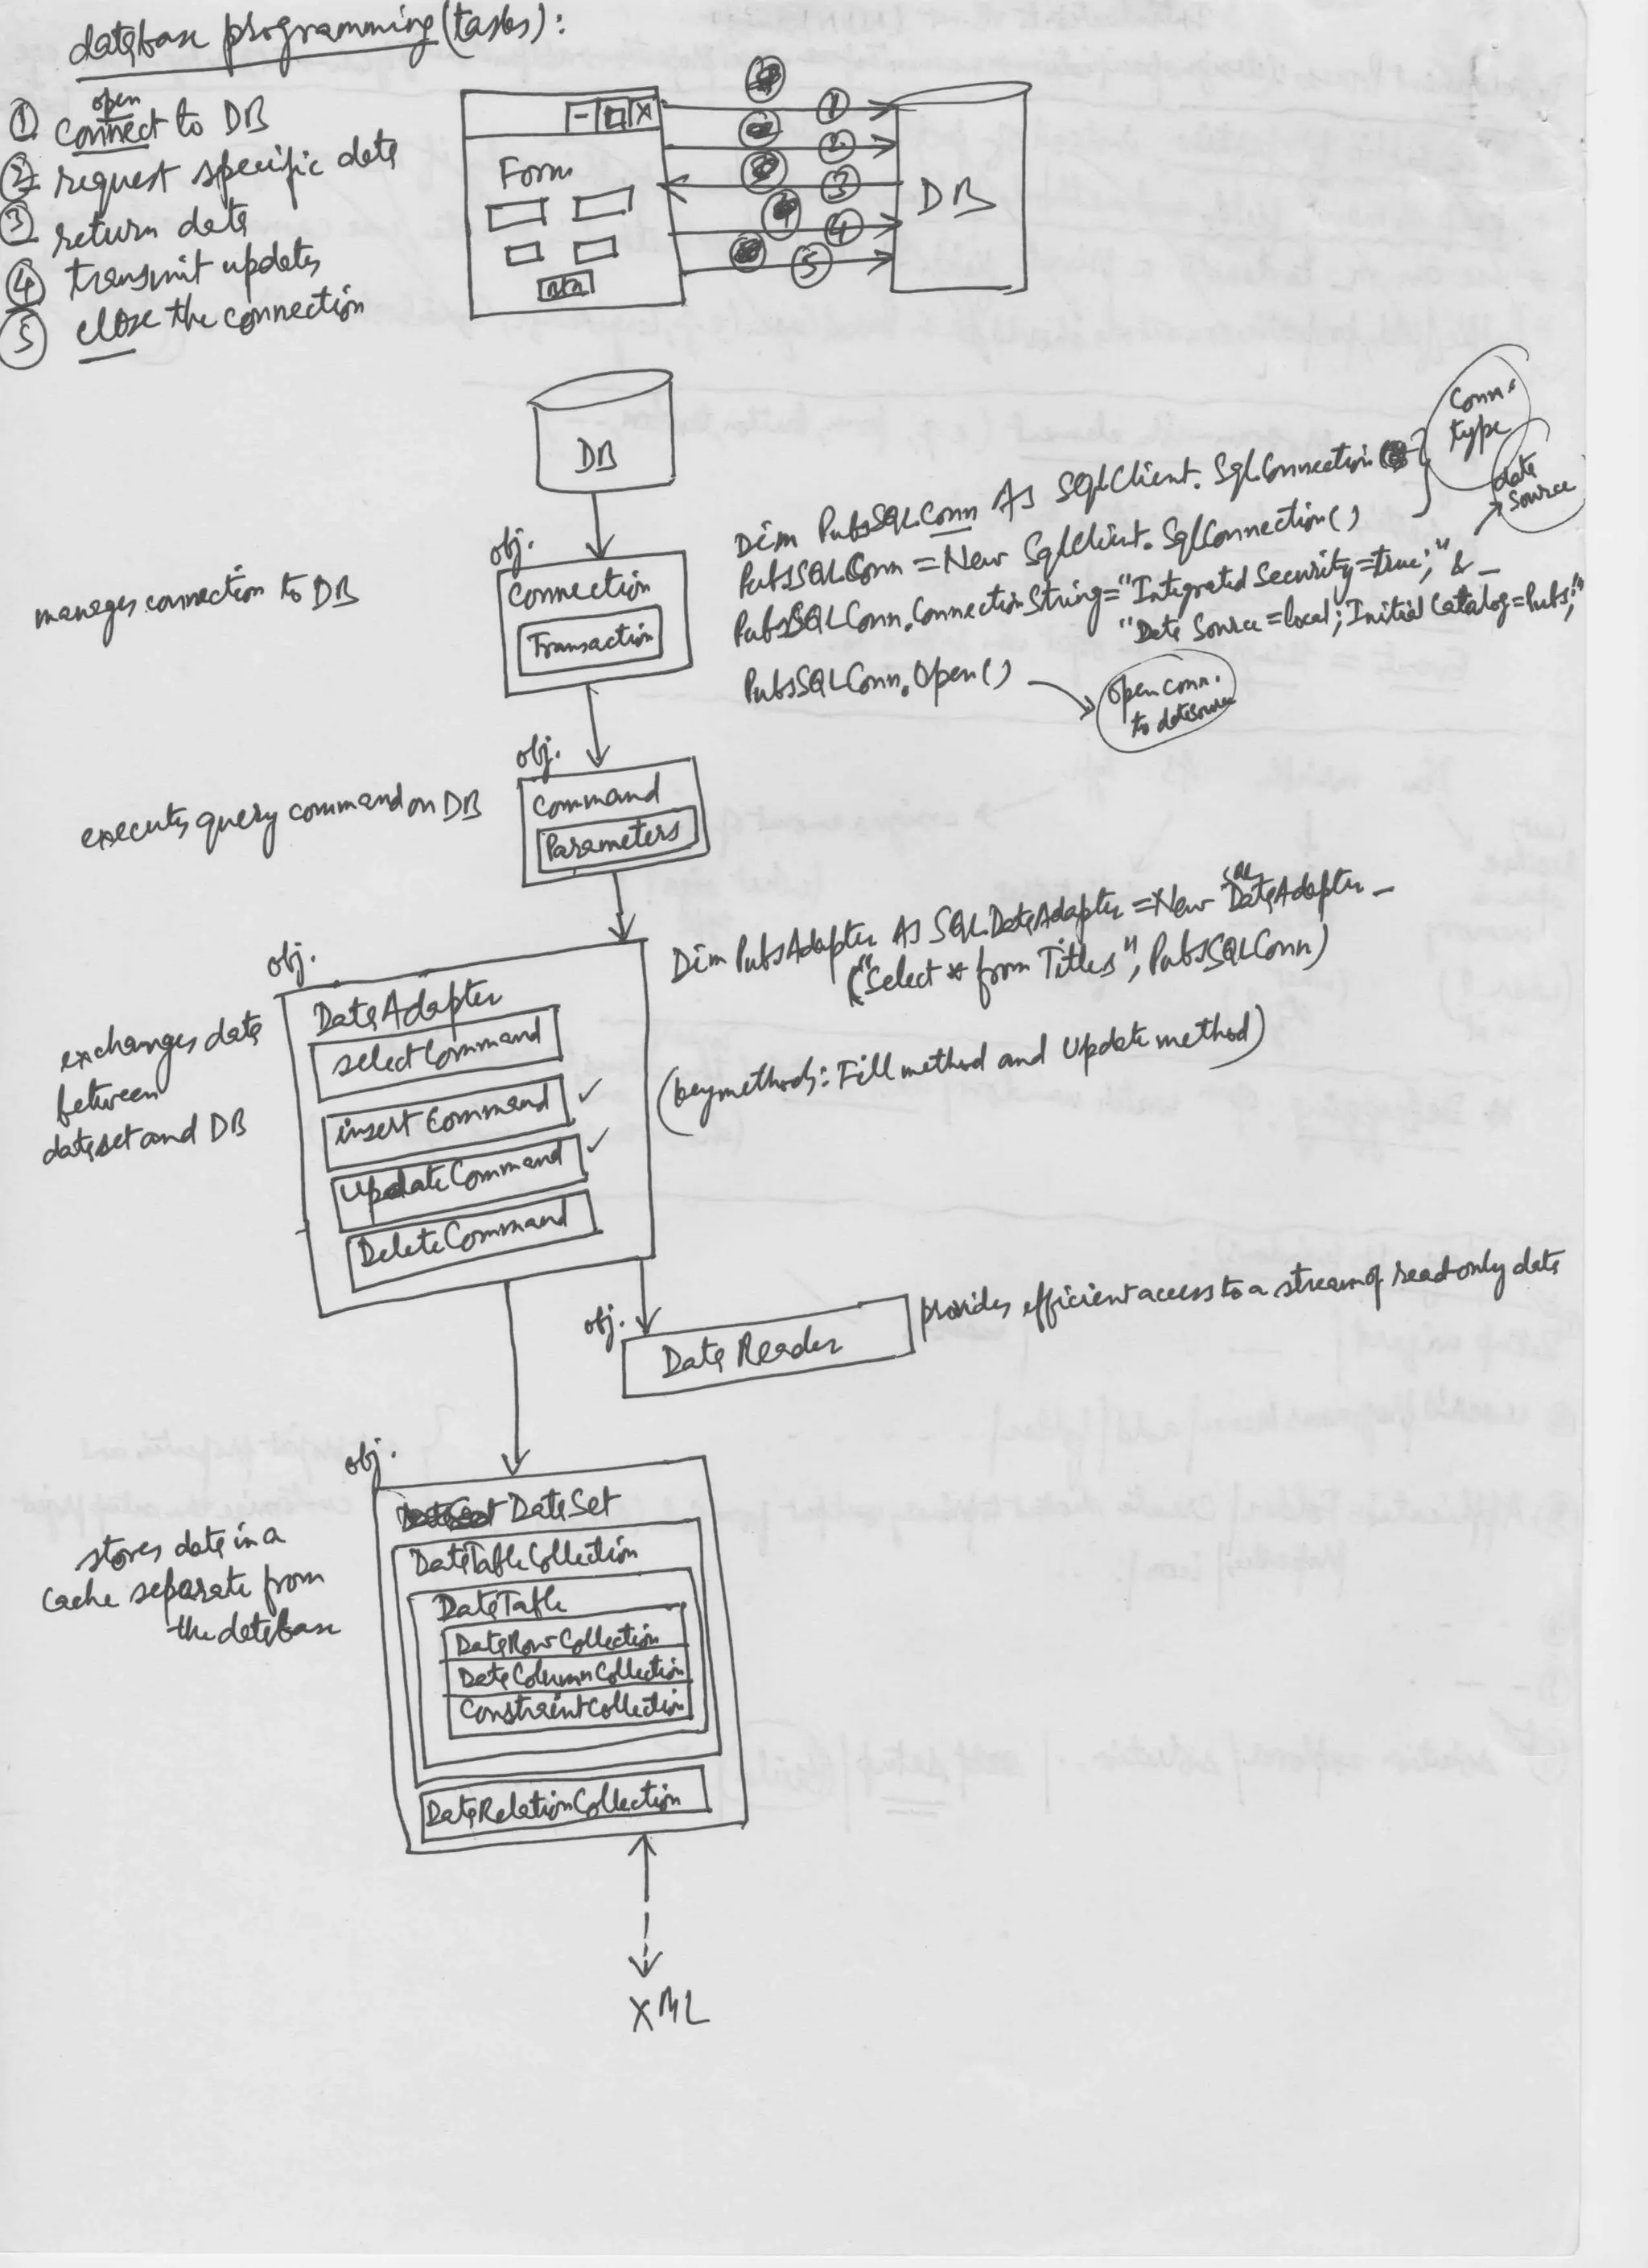 database programming (tasks):
open
① connect to DB
② request specific data
③ return data
④ transmit updates
⑤ close the connection
- □ X
Form
①
②
③
④
⑤
DB
DB
obj.
manages connection to DB
Connection
Transaction
Dim PubsSQLConn As SqlClient.SqlConnection
PubsSQLConn = New SqlClient.SqlConnection()
PubsSQLConn.ConnectionString="Integrated Security=true;" & _
"Data Source=local; Initial Catalog=Pubs;"
PubsSQLConn.Open()
Conn.
type
data
source
open conn.
to datasource
obj.
executes query command on DB
Command
Parameters
obj.
exchanges data
between
dataset and DB
DataAdapter
selectCommand
insertCommand ✓
UpdateCommand ✓
DeleteCommand
Dim PubsAdapter As SQLDataAdapter = New SQLDataAdapter _
("Select * from Titles", PubsSQLConn)
(key methods: Fill method and Update method)
obj.
Data Reader
provides efficient access to a stream of read-only data
obj.
stores data in a
cache separate from
the database
DataSet
DataTableCollection
DataTable
DataRowCollection
DataColumnCollection
ConstraintCollection
DataRelationCollection
XML